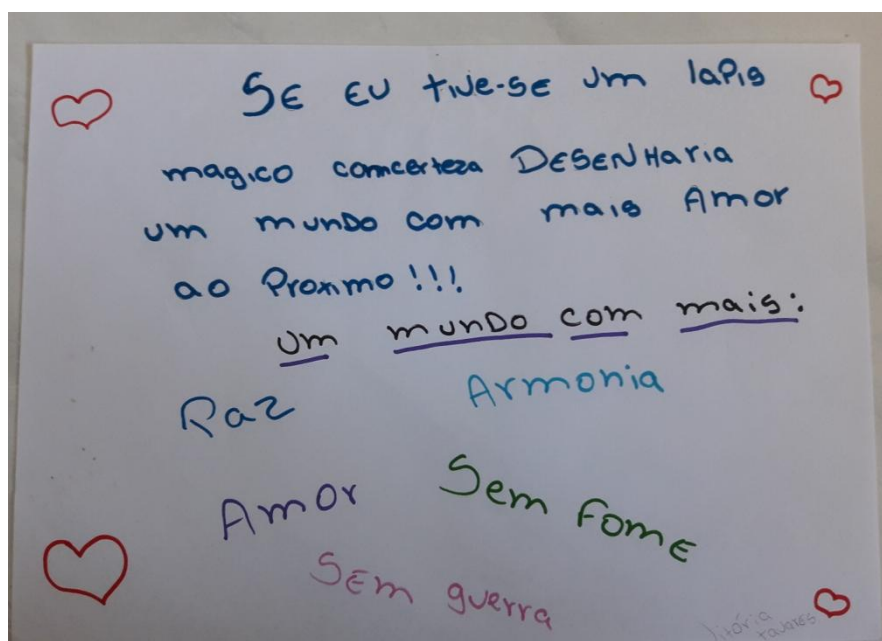 SE EU tive-SE um lapis
magico comcerteza DESENHaria
um munDo com mais Amor
ao Proximo!!!
um munDo com mais:
Paz Armonia
Amor Sem FomE
SEm guerra
Vitória
tavarES